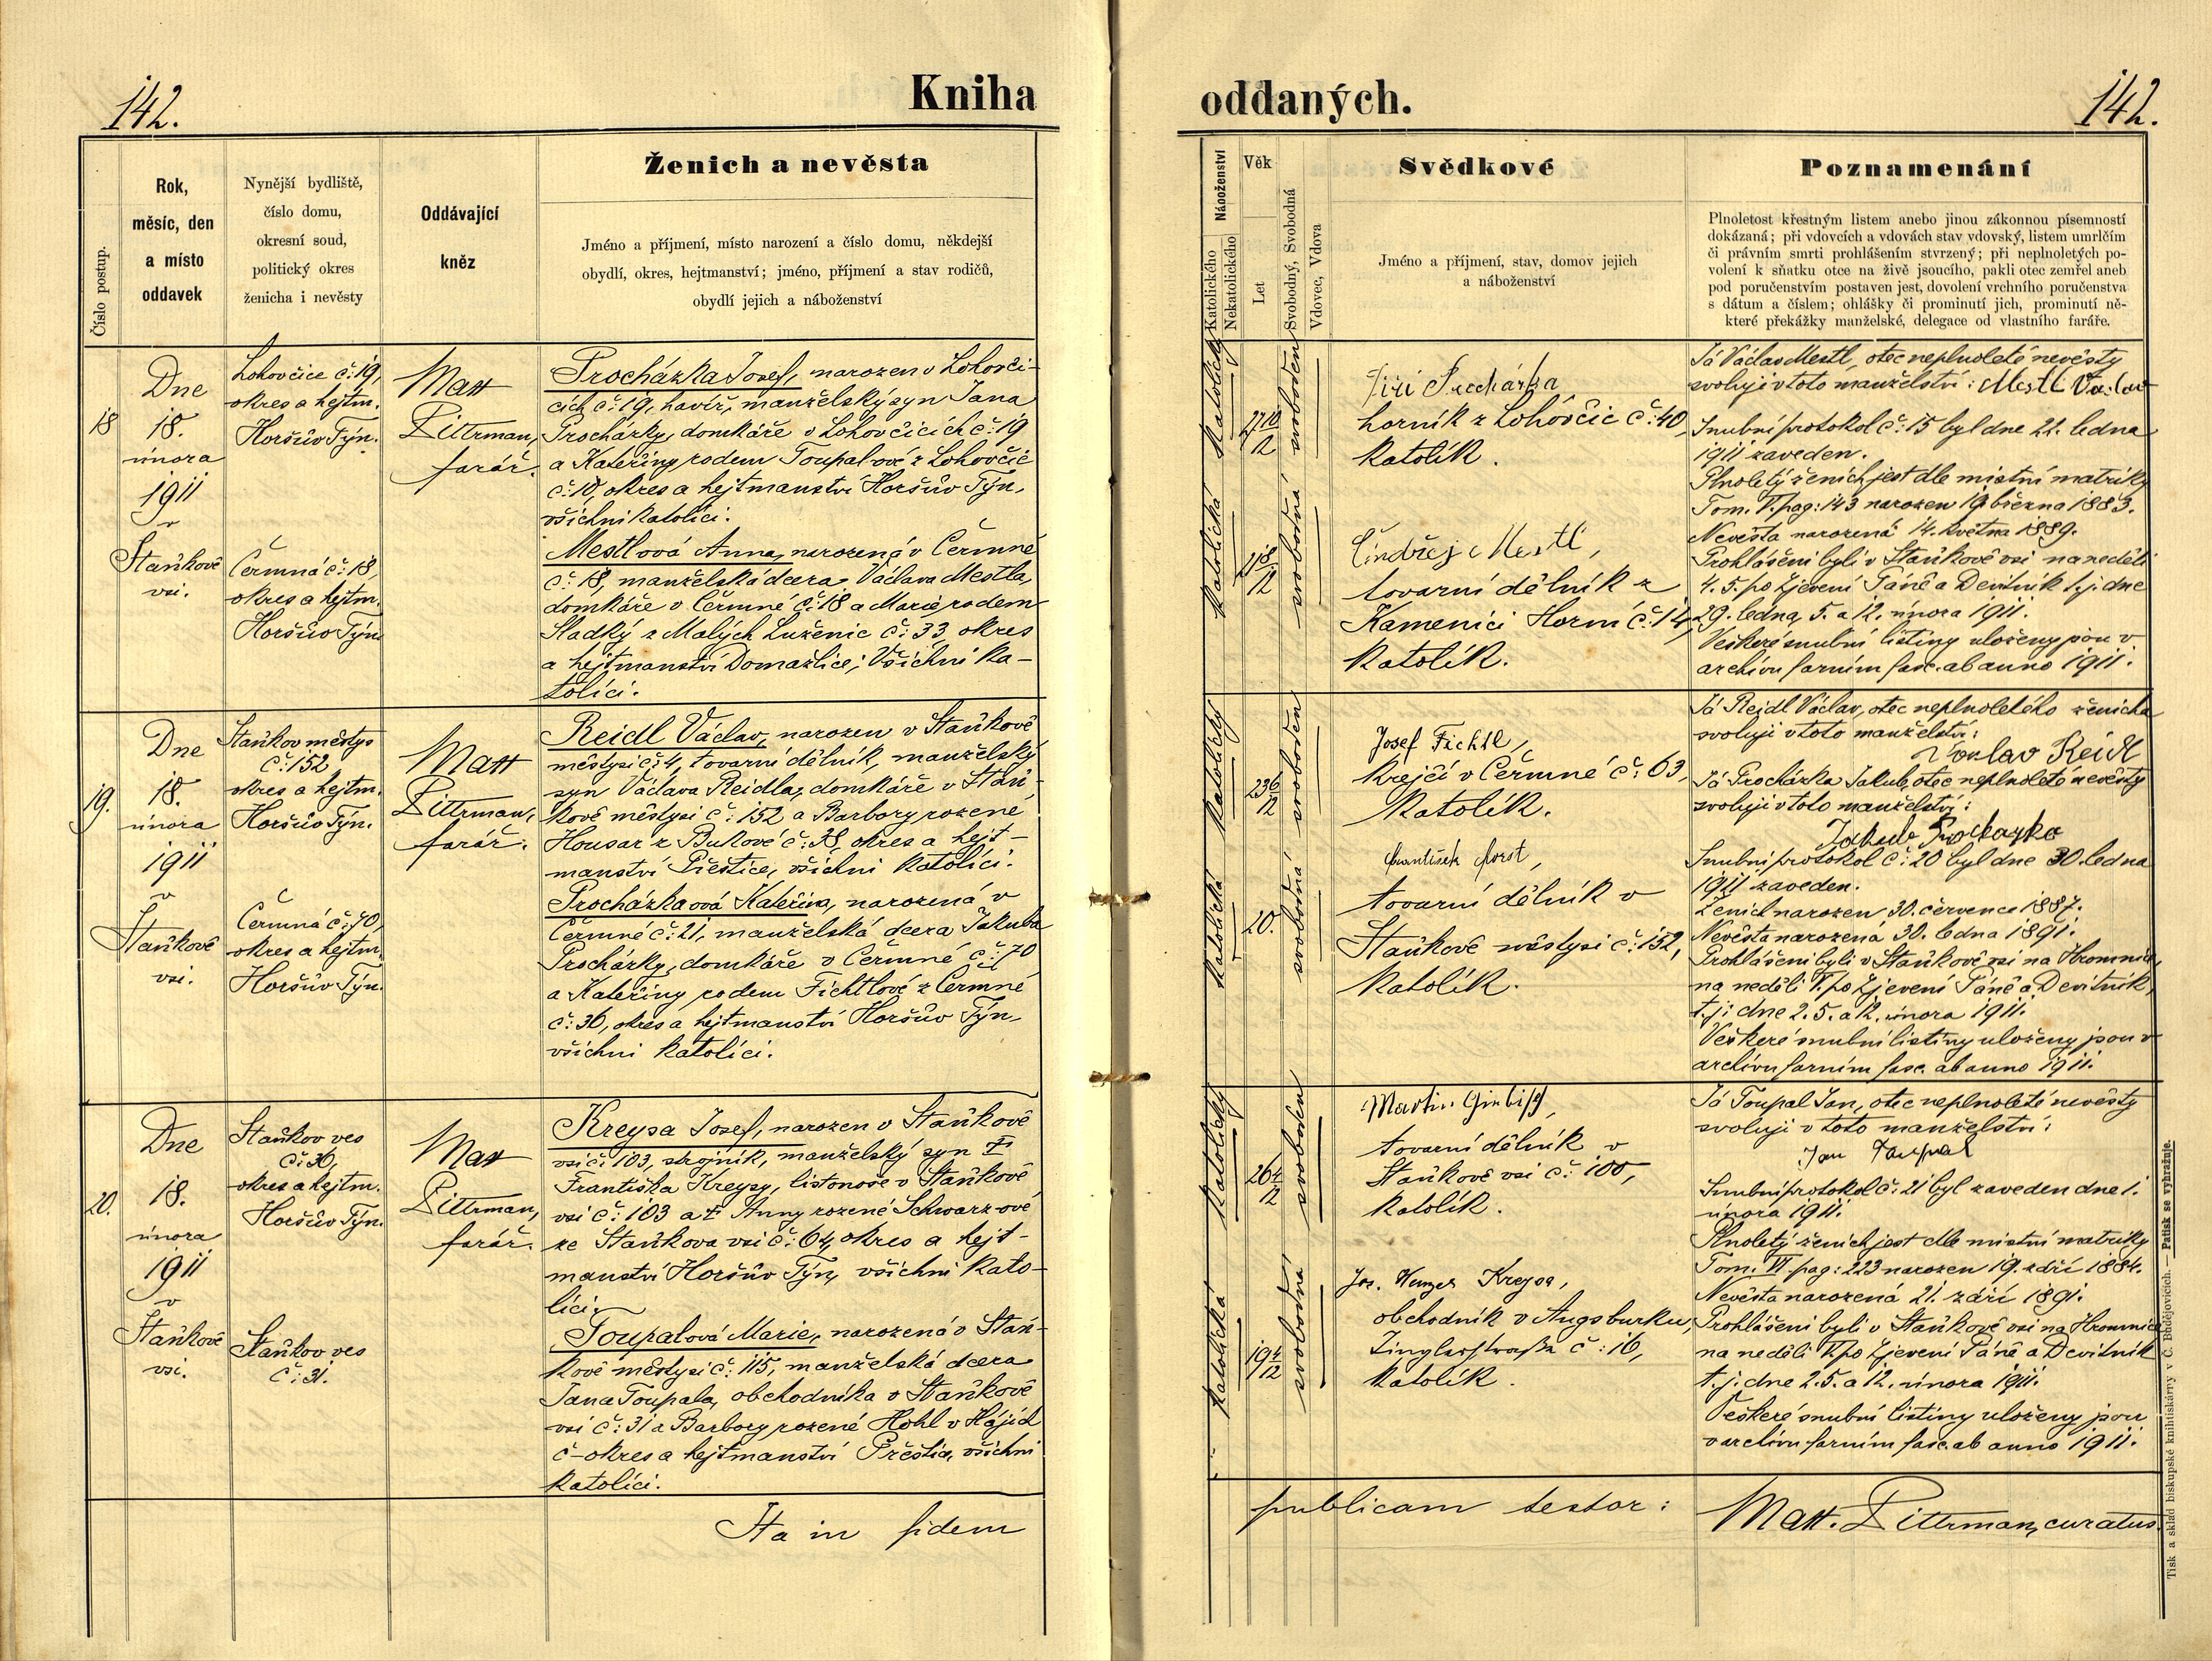 142.
Kniha
Číslo postup.
Rok,
měsíc, den
a místo
oddavek
Nynější bydliště,
číslo domu,
okresní soud,
politický okres
ženicha i nevěsty
Oddávající
kněz
Ženich a nevěsta
Jméno a příjmení, místo narození a číslo domu, někdejší
obydlí, okres, hejtmanství; jméno, příjmení a stav rodičů,
obydlí jejich a náboženství
18
Dne
18.
února
1911
v
Staňkově
vsi.
Lohovčice č: 19,
okres a hejtm.
Horšův Týn.
Čermná č: 18,
okres a hejtm.
Horšův Týn.
Matt
Pittrman,
farář.
Procházka Josef, narozen v Lohovči-
cích č: 19, havíř, manželský syn Jana
Procházky, domkáře v Lohovčicích č: 19
a Kateřiny rodem Toupalové z Lohovčic
č: 10, okres a hejtmanství Horšův Týn,
všichni katolíci.
Mestlová Anna, narozená v Čermné
č: 18, manželská dcera Václava Mestla,
domkáře v Čermné č: 18 a Marie rodem
Sladký z Malých Luženic č: 33, okres
a hejtmanství Domažlice; Všichni ka-
tolíci.
19.
Dne
18.
února
1911
v
Staňkově
vsi.
Staňkov městys
č: 152
okres a hejtm.
Horšův Týn.
Čermná č: 70,
okres a hejtm.
Horšův Týn.
Matt
Pittrman,
farář.
Reidl Václav, narozen v Staňkově
městysi č: 4, tovarní dělník, manželský
syn Václava Reidla, domkáře v Staň-
kově městysi č: 152 a Barbory rozené
Housar z Bukové č: 38, okres a hejt-
manství Přeštice, všichni katolíci.
Procházkaová Kateřina, narozená v
Čermné č: 21, manželská dcera Jakuba
Procházky, domkáře v Čermné č: 70
a Kateřiny rodem Fichtlové z Čermné
č: 36, okres a hejtmanství Horšův Týn,
všichni katolíci.
20.
Dne
18.
února
1911
v
Staňkově
vsi.
Staňkov ves
č: 36,
okres a hejtm.
Horšův Týn.
Staňkov ves
č: 31.
Matt
Pittrman,
farář.
Kreysa Josef, narozen v Staňkově
vsi č: 103, strojník, manželský syn †
Františka Kreysy, listonoše v Staňkově
vsi č: 103 a † Anny rozené Schwarzové
ze Staňkova vsi č: 64, okres a hejt-
manství Horšův Týn, všichni kato-
líci.
Toupalová Marie, narozená v Staň-
kově městysi č: 115, manželská dcera
Jana Toupala, obchodníka v Staňkově
vsi č: 31 a Barbory rozené Hohl v Hájích
č - okres a hejtmanství Přeštice, všichni
katolíci.
Ita in fidem
oddaných.
142.
Náboženství
Katolického
Nekatolického
Věk
Let
Svobodný, Svobodná
Vdovec, Vdova
Svědkové
Jméno a příjmení, stav, domov jejich
a náboženství
Poznamenání
Plnoletost křestným listem anebo jinou zákonnou písemností
dokázaná; při vdovcích a vdovách stav vdovský, listem umrlčím
či právním smrti prohlášením stvrzený; při neplnoletých po-
volení k sňatku otce na živě jsoucího, pakli otec zemřel aneb
pod poručenstvím postaven jest, dovolení vrchního poručenstva
s dátum a číslem; ohlášky či prominutí jich, prominutí ně-
které překážky manželské, delegace od vlastního faráře.
katolický
27 10/12
svoboden
katolická
svobodná
Jiří Procházka
horník z Lohovčic č: 40,
katolík.
Ondřej Mestl,
tovarní dělník z
Kamenici Horní č: 14,
katolík.
Já Václav Mestl, otec neplnoleté nevěsty
svoluji v toto manželství: Mestl Václav
Snubní protokol č: 15 byl dne 22. ledna
1911 zaveden.
Plnoletý ženich jest dle místní matriky
Tom. V. pag: 143 narozen 19. března 1883.
Nevěsta narozená 14. května 1889.
Prohlášeni byli v Staňkově vsi na neděli
4. 5. po Zjevení Páně a Devítník t. j. dne
29. ledna, 5. a 12. února 1911.
Veškeré snubní listiny uloženy jsou v
archivu farním fasc. ab anno 1911.
katolický
23 6/12
svoboden
katolická
20.
svobodná
Josef Fichtl,
krejčí v Čermné č: 63,
katolík.
František Horst,
tovarní dělník v
Staňkově městysi č: 152,
katolík.
Já Reidl Václav, otec neplnoletého ženicha
svoluji v toto manželství:
Václav Reidl
Já Procházka Jakub, otec neplnoleté nevěsty
svoluji v toto manželství:
Jakub Procházka
Snubní protokol č: 20 byl dne 30. ledna
1911 zaveden.
Ženich narozen 30. července 1887.
Nevěsta narozená 30. ledna 1891.
Prohlášeni byli v Staňkově vsi na Hromnice,
na neděli V. po Zjevení Páně a Devítník,
t. j. dne 2. 5. a 12. února 1911.
Veškeré snubní listiny uloženy jsou v
archivu farním fasc. ab anno 1911.
katolický
26 4/12
svoboden
katolická
19 4/12
svobodná
Martin
tovarní dělník v
Staňkově vsi č: 100,
katolík.
Jos. Kreysa,
obchodník v Augsburku,
č: 16,
katolík.
Já Toupal Jan, otec neplnoleté nevěsty
svoluji v toto manželství:
Jan Toupal
Snubní protokol č: 21 byl zaveden dne 1.
února 1911.
Plnoletý ženich jest dle místní matriky
Tom. VI pag: 223 narozen 19. září 1884.
Nevěsta narozená 21. září 1891.
Prohlášeni byli v Staňkově vsi na Hromnice
na neděli V. po Zjevení Páně a Devítník
t. j. dne 2. 5. a 12. února 1911.
Veškeré snubní listiny uloženy jsou
v archivu farním fasc. ab anno 1911.
publicam testor:
Matt. Pittrman, curatus.
Tisk a sklad biskupské knihtiskárny v Č. Budějovicích. — Patisk se vyhražuje.